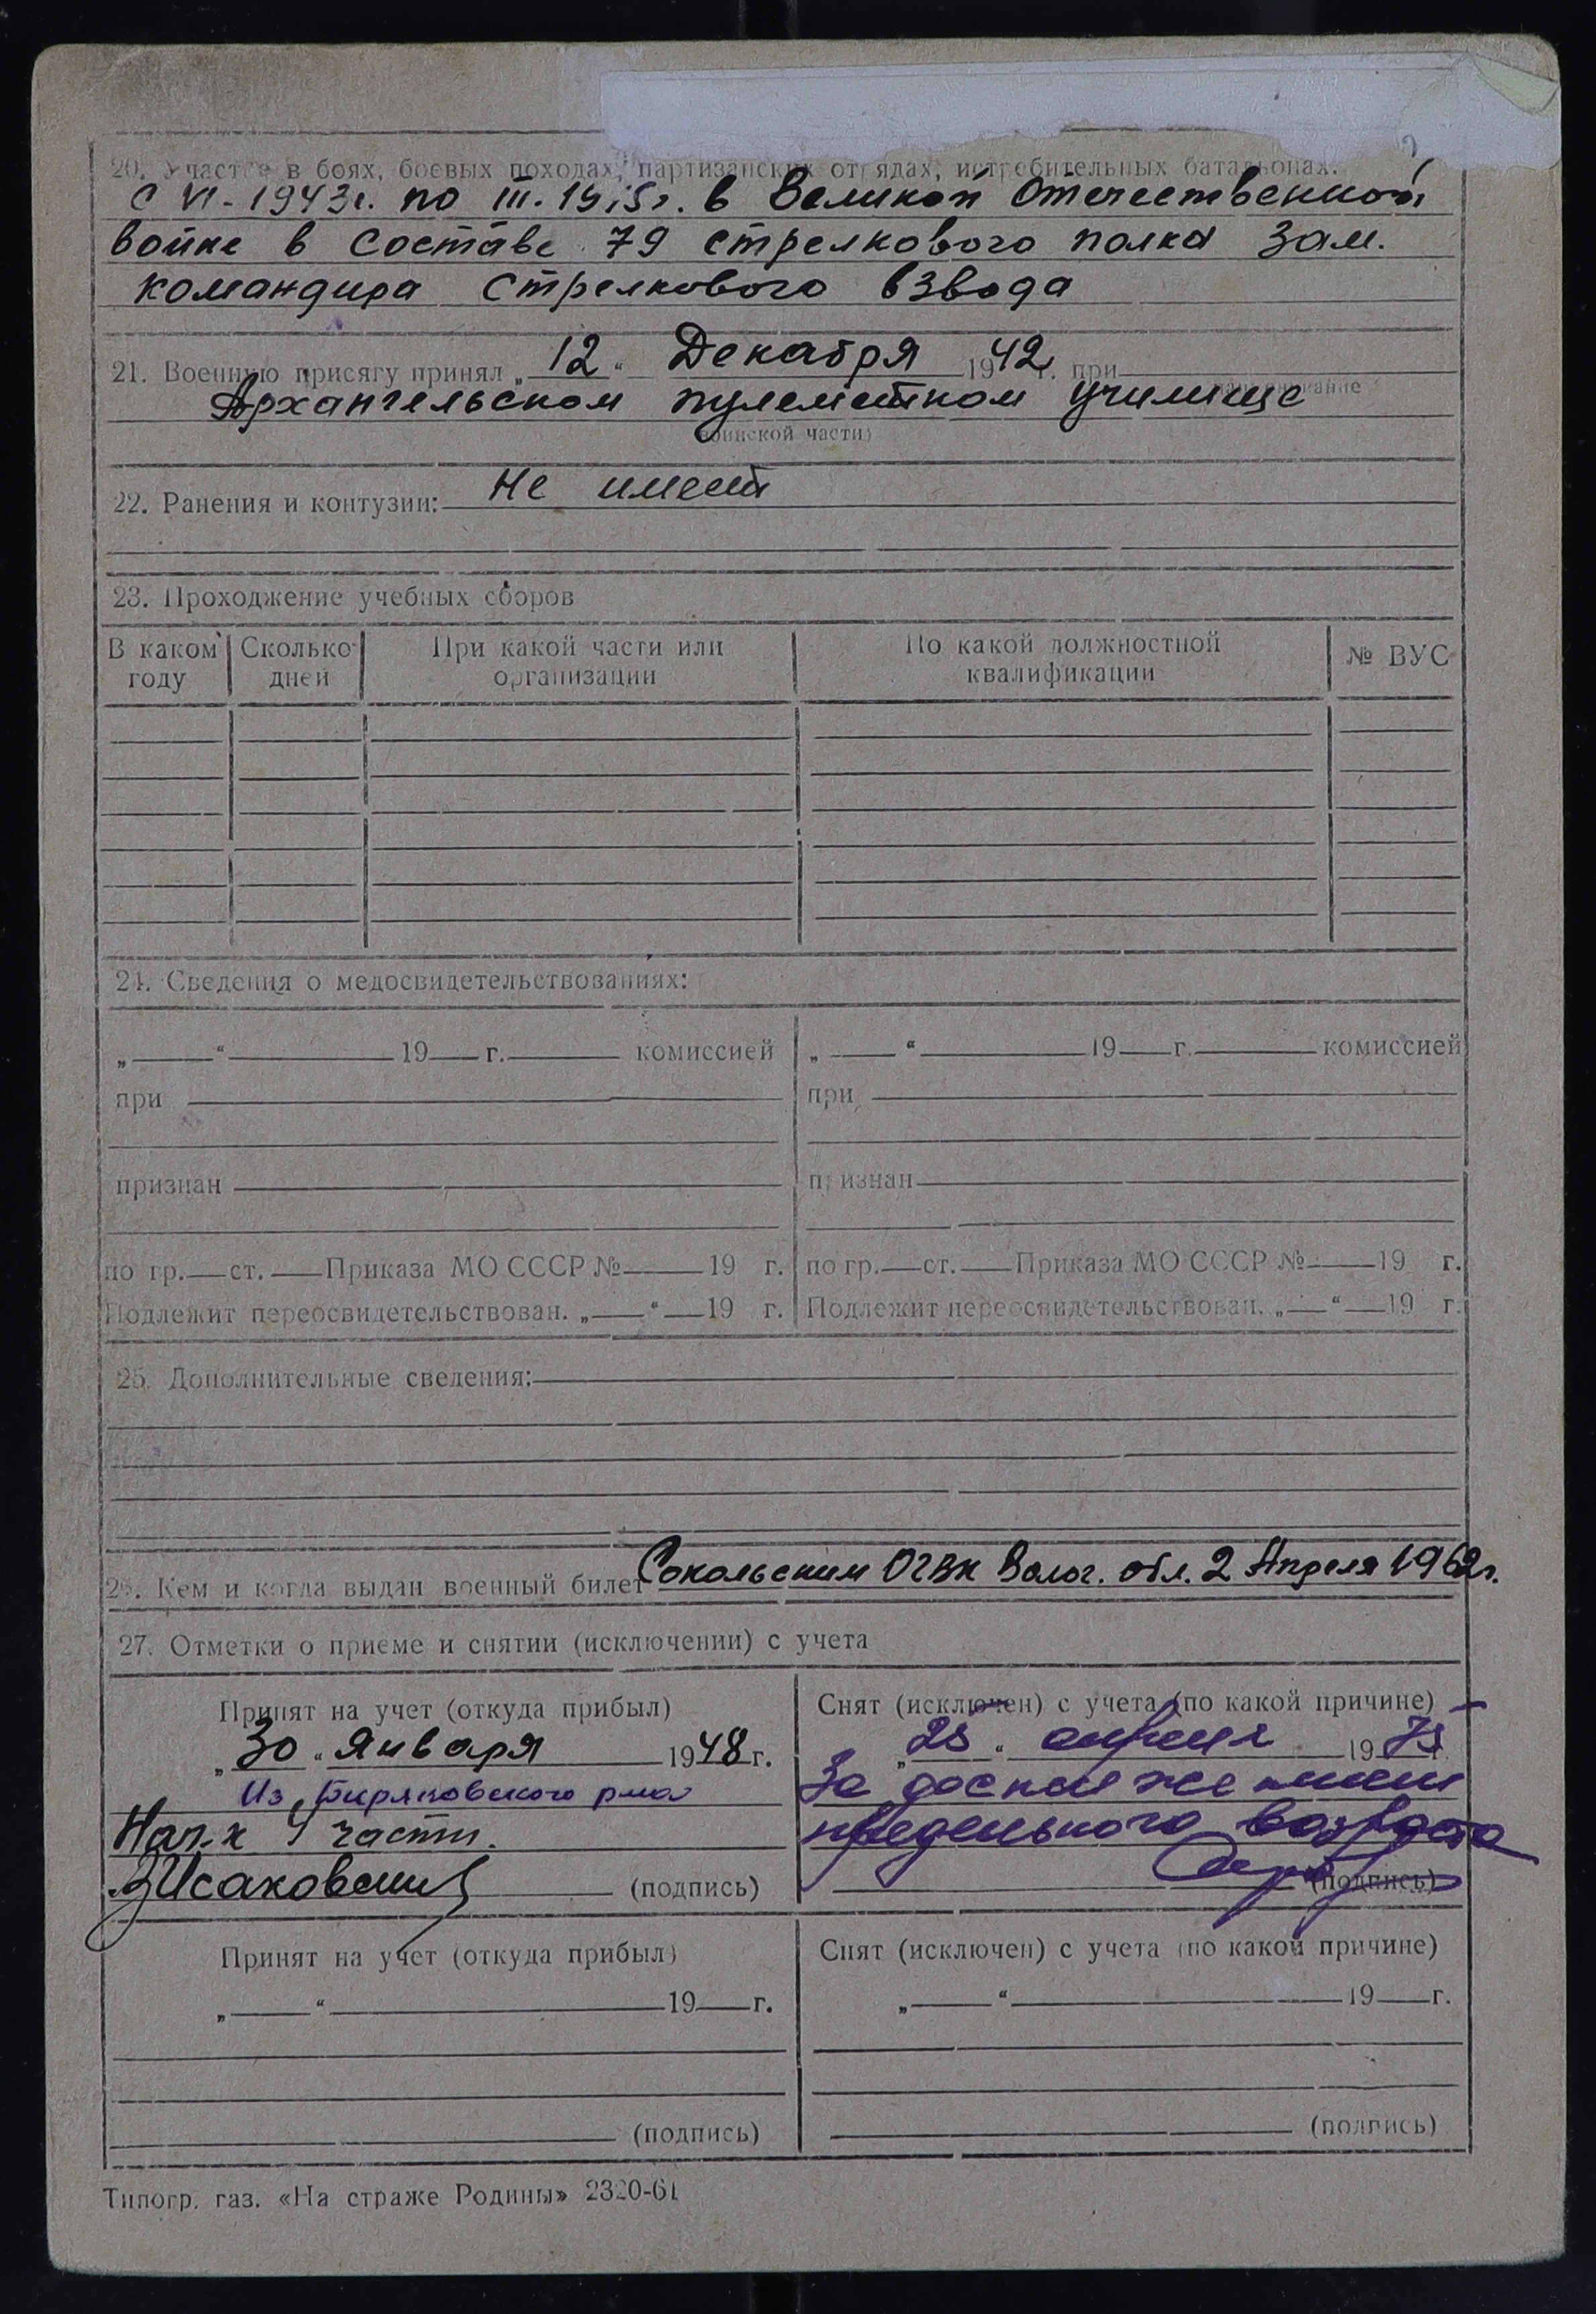 20. Участие в боях, боевых походах, партизанских отрядах, истребительных батальонах.
С VI - 1943г. по III. 1945г. в Великой Отечественной
войне в составе 79 стрелкового полка зам.
командира стрелкового взвода
21. Военную присягу принял „ 12 “ Декабря 1942 г. при
Архангельском пулеметном училище
воинской части)
22. Ранения и контузии: Не имеет
23. Проходжение учебных сборов
В каком году | Сколько дней | При какой части или организации | По какой должностной квалификации | № ВУС
24. Сведения о медосвидетельствованиях:
„ “ 19 г. комиссией | „ “ 19 г. комиссией
при | при
признан | признан
по гр. ст. Приказа МО СССР № 19 г. | по гр. ст. Приказа МО СССР № 19 г.
Подлежит переосвидетельствован. „ “ 19 г. | Подлежит переосвидетельствован. „ “ 19 г.
25. Дополнительные сведения:
26. Кем и когда выдан военный билет Сокольским ОГВК Волог. обл. 2 Апреля 1962г.
27. Отметки о приеме и снятии (исключении) с учета
Принят на учет (откуда прибыл) | Снят (исключен) с учета (по какой причине)
„ 30 “ Января 1948 г. | „ 25 “ апреля 1975
Из Биряковского рма | За достижением
Нач-к 4 части. | предельного возраста
(подпись) | (подпись)
Принят на учет (откуда прибыл) | Снят (исключен) с учета (по какой причине)
„ “ 19 г. | „ “ 19 г.
(подпись) | (подпись)
Типогр. газ. «На страже Родины» 2320-61